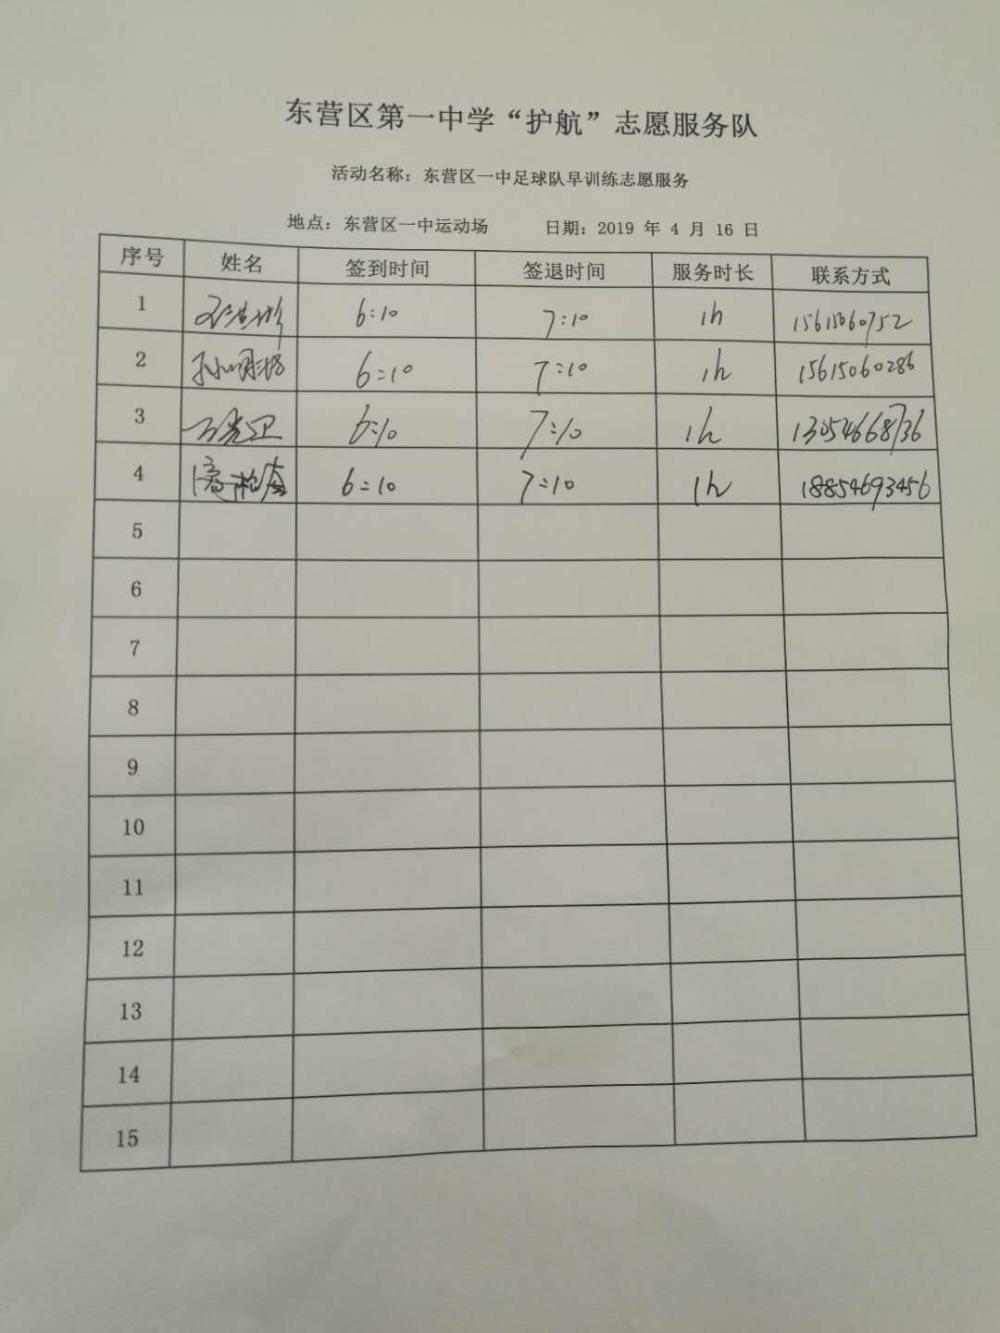 东营区第一中学“护航”志愿服务队
活动名称：东营区一中足球队早训练志愿服务
地点：东营区一中运动场 日期：2019 年 4 月 16 日
序号 姓名 签到时间 签退时间 服务时长 联系方式
1 6:10 7:10 1h 15615060752
2 6:10 7:10 1h 15615060286
3 6:10 7:10 1h 13054668736
4 6:10 7:10 1h 18854693456
5
6
7
8
9
10
11
12
13
14
15